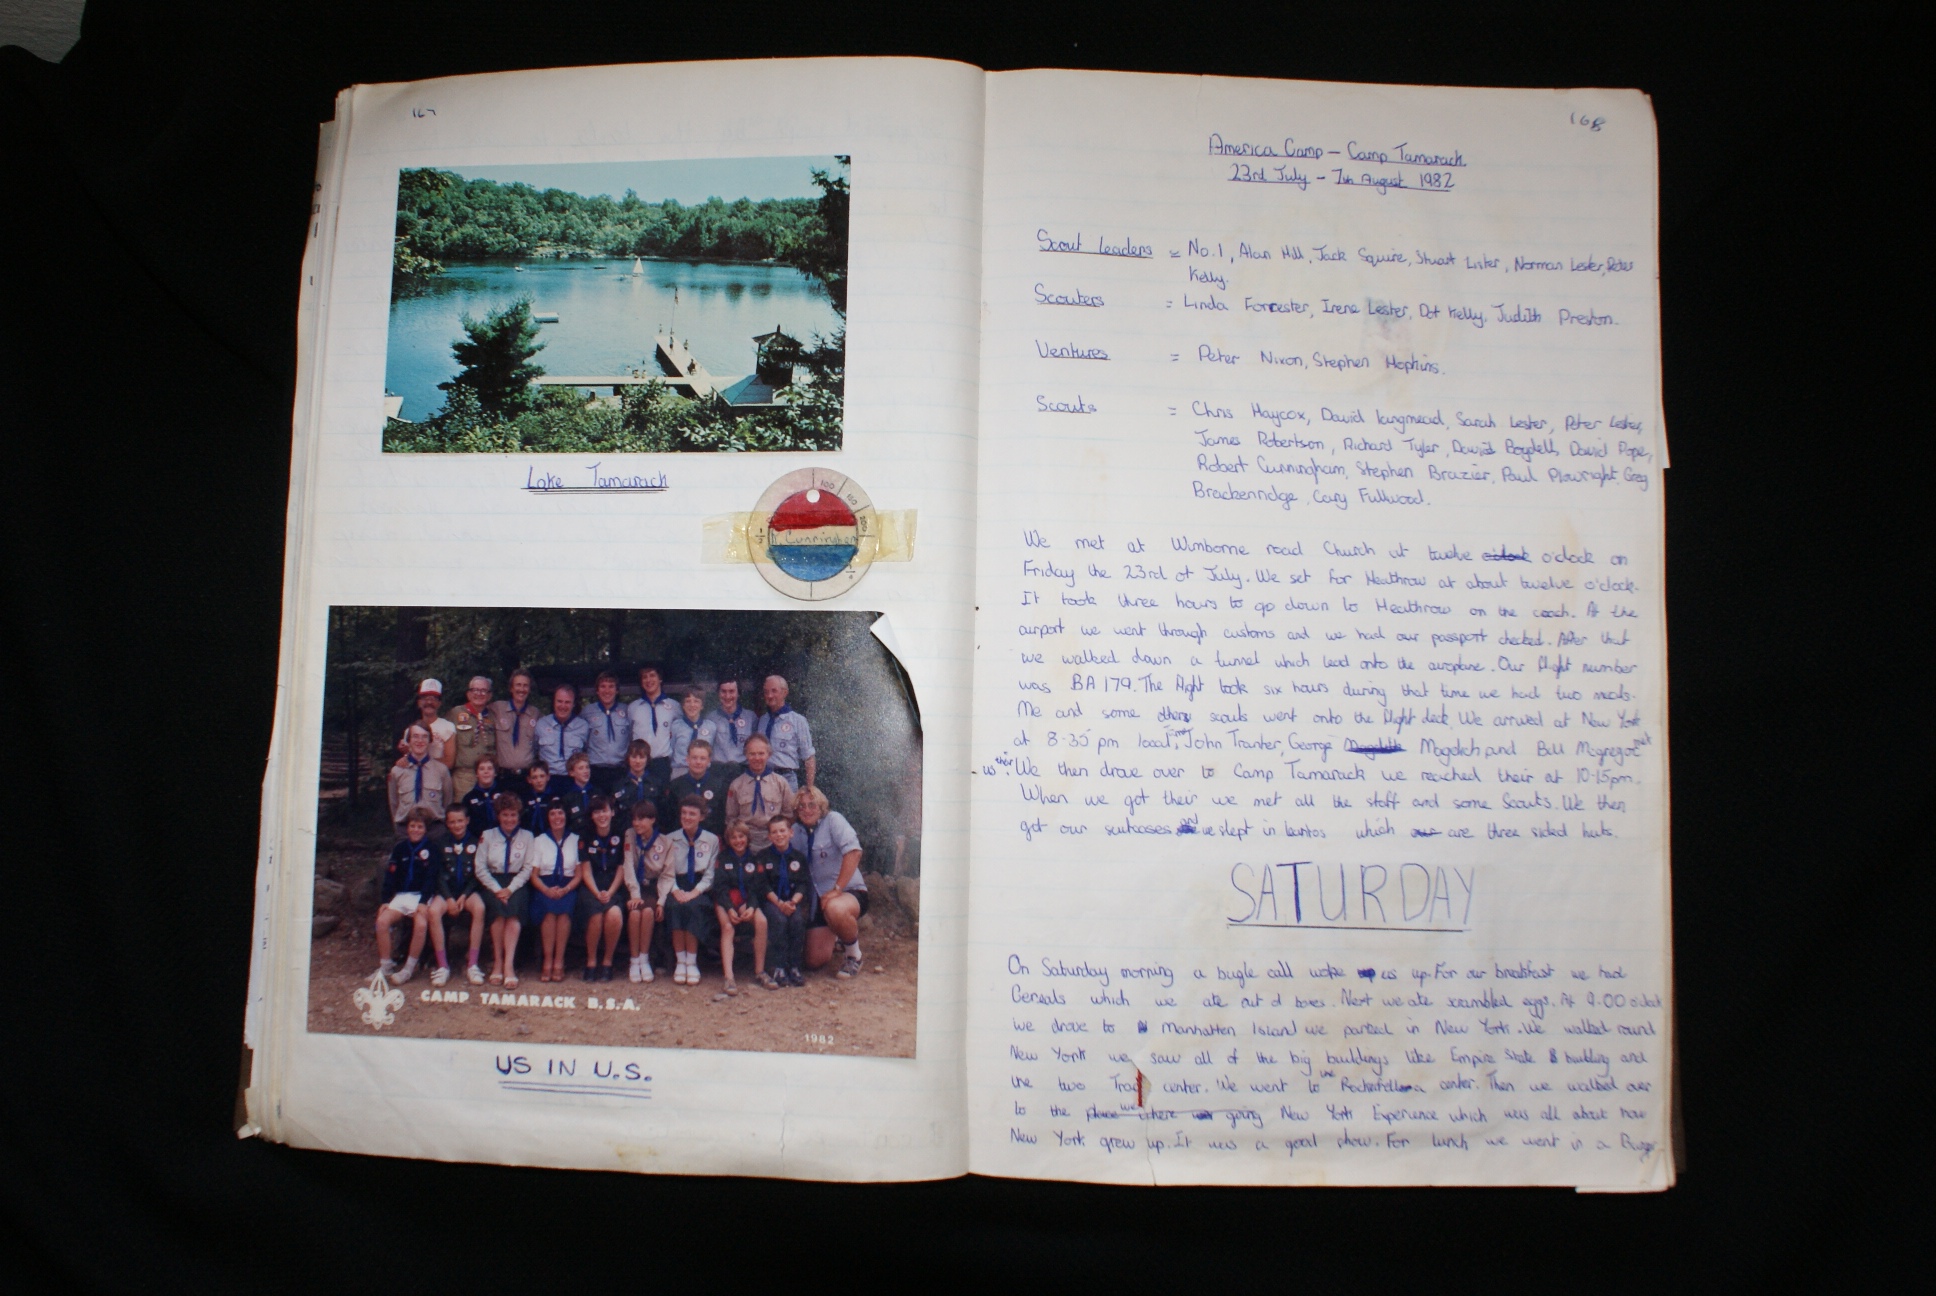 167
Lake Tamarach
100
R. Cunningham
CAMP TAMARACK B.S.A.
1982
US IN U.S.
168
America Camp - Camp Tamarach
23rd July - 7th August 1982
Scout Leaders = No.1, Alan Hill, Jack Squire, Stuart Lister, Norman Lester, Peter
Kelly.
Scouters = Linda Forrester, Irene Lester, Dot Kelly, Judith Preston.
Ventures = Peter Nixon, Stephen Hopkins.
Scouts = Chris Haycox, David Langmead, Sarah Lester, Peter Lester,
James Robertson, Richard Tyler, David Boydell, David Pope,
Robert Cunningham, Stephen Brazier, Paul Plowright, Greg
Brackenridge, Gary Fullwood.
We met at Wimborne road Church at twelve o'clock on
Friday the 23rd of July. We set for Heathrow at about twelve o'clock.
It took three hours to go down to Heathrow on the coach. At the
airport we went through customs and we had our passport checked. After that
we walked down a tunnel which lead onto the aeroplane. Our flight number
was BA 179. The flight took six hours during that time we had two meals.
Me and some other scouts went onto the flight deck. We arrived at New York
at 8-35 pm local time, John Tranter, George Magelich and Bill Mcgregor met
us their. We then drove over to Camp Tamarack we reached their at 10-15pm.
When we got their we met all the staff and some Scouts. We then
got our suitcases and we slept in lantos which are three sided huts.
SATURDAY
On Saturday morning a bugle call woke us up. For our breakfast we had
Cereals which we ate out of boxes. Next we ate scrambled eggs. At 9.00 o'clock
we drove to Manhatten Island we parked in New York. We walked round
New York we saw all of the big buildings like Empire State building and
the two Trad center. We went to the Rockerfella center. Then we walked over
to the place we where going New York Experience which was all about how
New York grew up. It was a good show. For lunch we went in a Burger